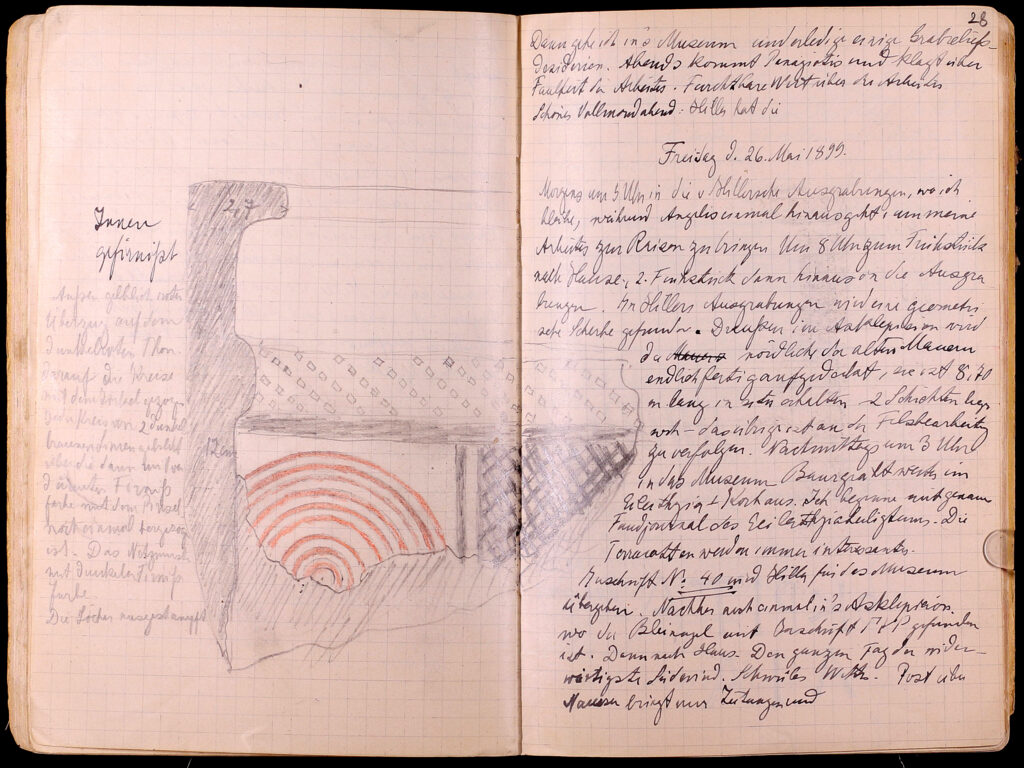 Innen
gefirnißt
2,7
Außen gelblich roter
Überzug auf dem
dunkelroten Thon.
worauf die Kreise
mit dem Zirkel gezogen
2 dunkel
sind
dünner Firniß
farbe mit dem Pinsel
noch einmal
ist. Das Netzmuster
mit dunkler Firniß-
farbe.
Die Löcher
12 cm
28
Dann gehe ich in's Museum und erledige einige Grabrelief-
Desiderien. Abends kommt Panagiotis und klagt über
Faulheit der Arbeiter. Furchtbare Wut über die Arbeiter
Schöner Vollmondabend. Hiller hat die
Freitag d. 26. Mai 1899.
Morgens um 5 Uhr in die v. Hillersche Ausgrabungen, wo ich
bleibe, während Angelis einmal hinausgeht, um meine
Arbeiter zur Raison zu bringen Um 8 Uhr zum Frühstück
nach Hause, 2. Frühstück dann hinaus in die Ausgra
bungen. In Hillers Ausgrabungen wird eine geometri
sche Scherbe gefunden. Draußen im Asklepieion wird
die nördlich der alten Mauern
endlich fertig aufgedeckt, sie ist 8,70
m lang in erhalten 2 Schichten
noch - das übrige ist an der Felsbearbeitung
zu verfolgen. Nachmittags um 3 Uhr
in das Museum im
Eileithyia + Ich beginne mit genauem
Fundjournal des Eileithyiaheiligtums. Die
Terracotten werden immer interessanter.
Inschrift No. 40 wird Hiller für das Museum
übergeben. Nachher noch einmal in's Asklepieion,
wo der Bleinagel mit gefunden
ist. Dann nach Haus. Den ganzen Tag der wider-
wärtigste Südwind. Schwüles Wetter. Post über
bringt nur Zeitungen und